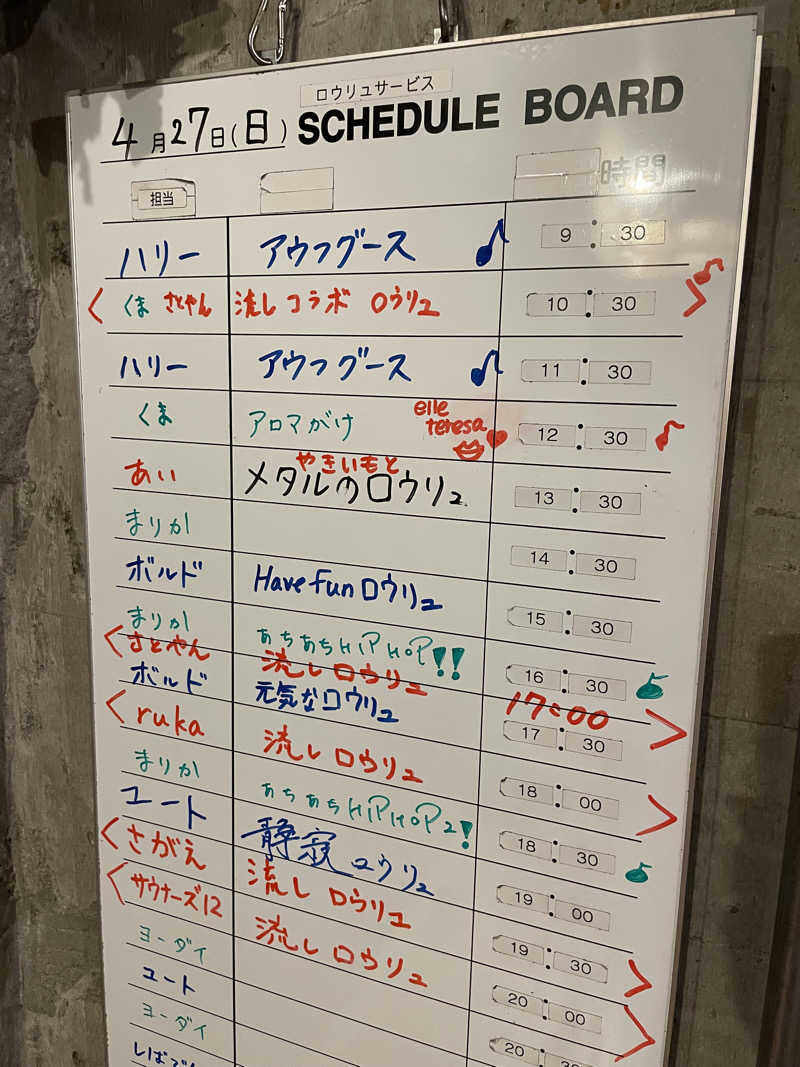 ロウリュサービス
4月27日(日) SCHEDULE BOARD
担当 時間
ハリー アウフグース 9:30
くま さとやん 流し コラボ ロウリュ 10:30
ハリー アウフグース 11:30
くま アロマがけ elle teresa 12:30
あい やきいもと メタルのロウリュ 13:30
まりか 14:30
ボルド Have fun ロウリュ 15:30
まりか あちあちHIPHOP!! 16:30
さとやん 流しロウリュ 17:00
ボルド 元気なロウリュ 17:30
ruka 流し ロウリュ 18:00
まりか あちあちHIPHOP2! 18:30
ユート 静寂ロウリュ 19:00
さがえ 流し ロウリュ 19:30
サウナーズ12 流し ロウリュ 20:00
ヨーダイ 20:30
ユート
ヨーダイ